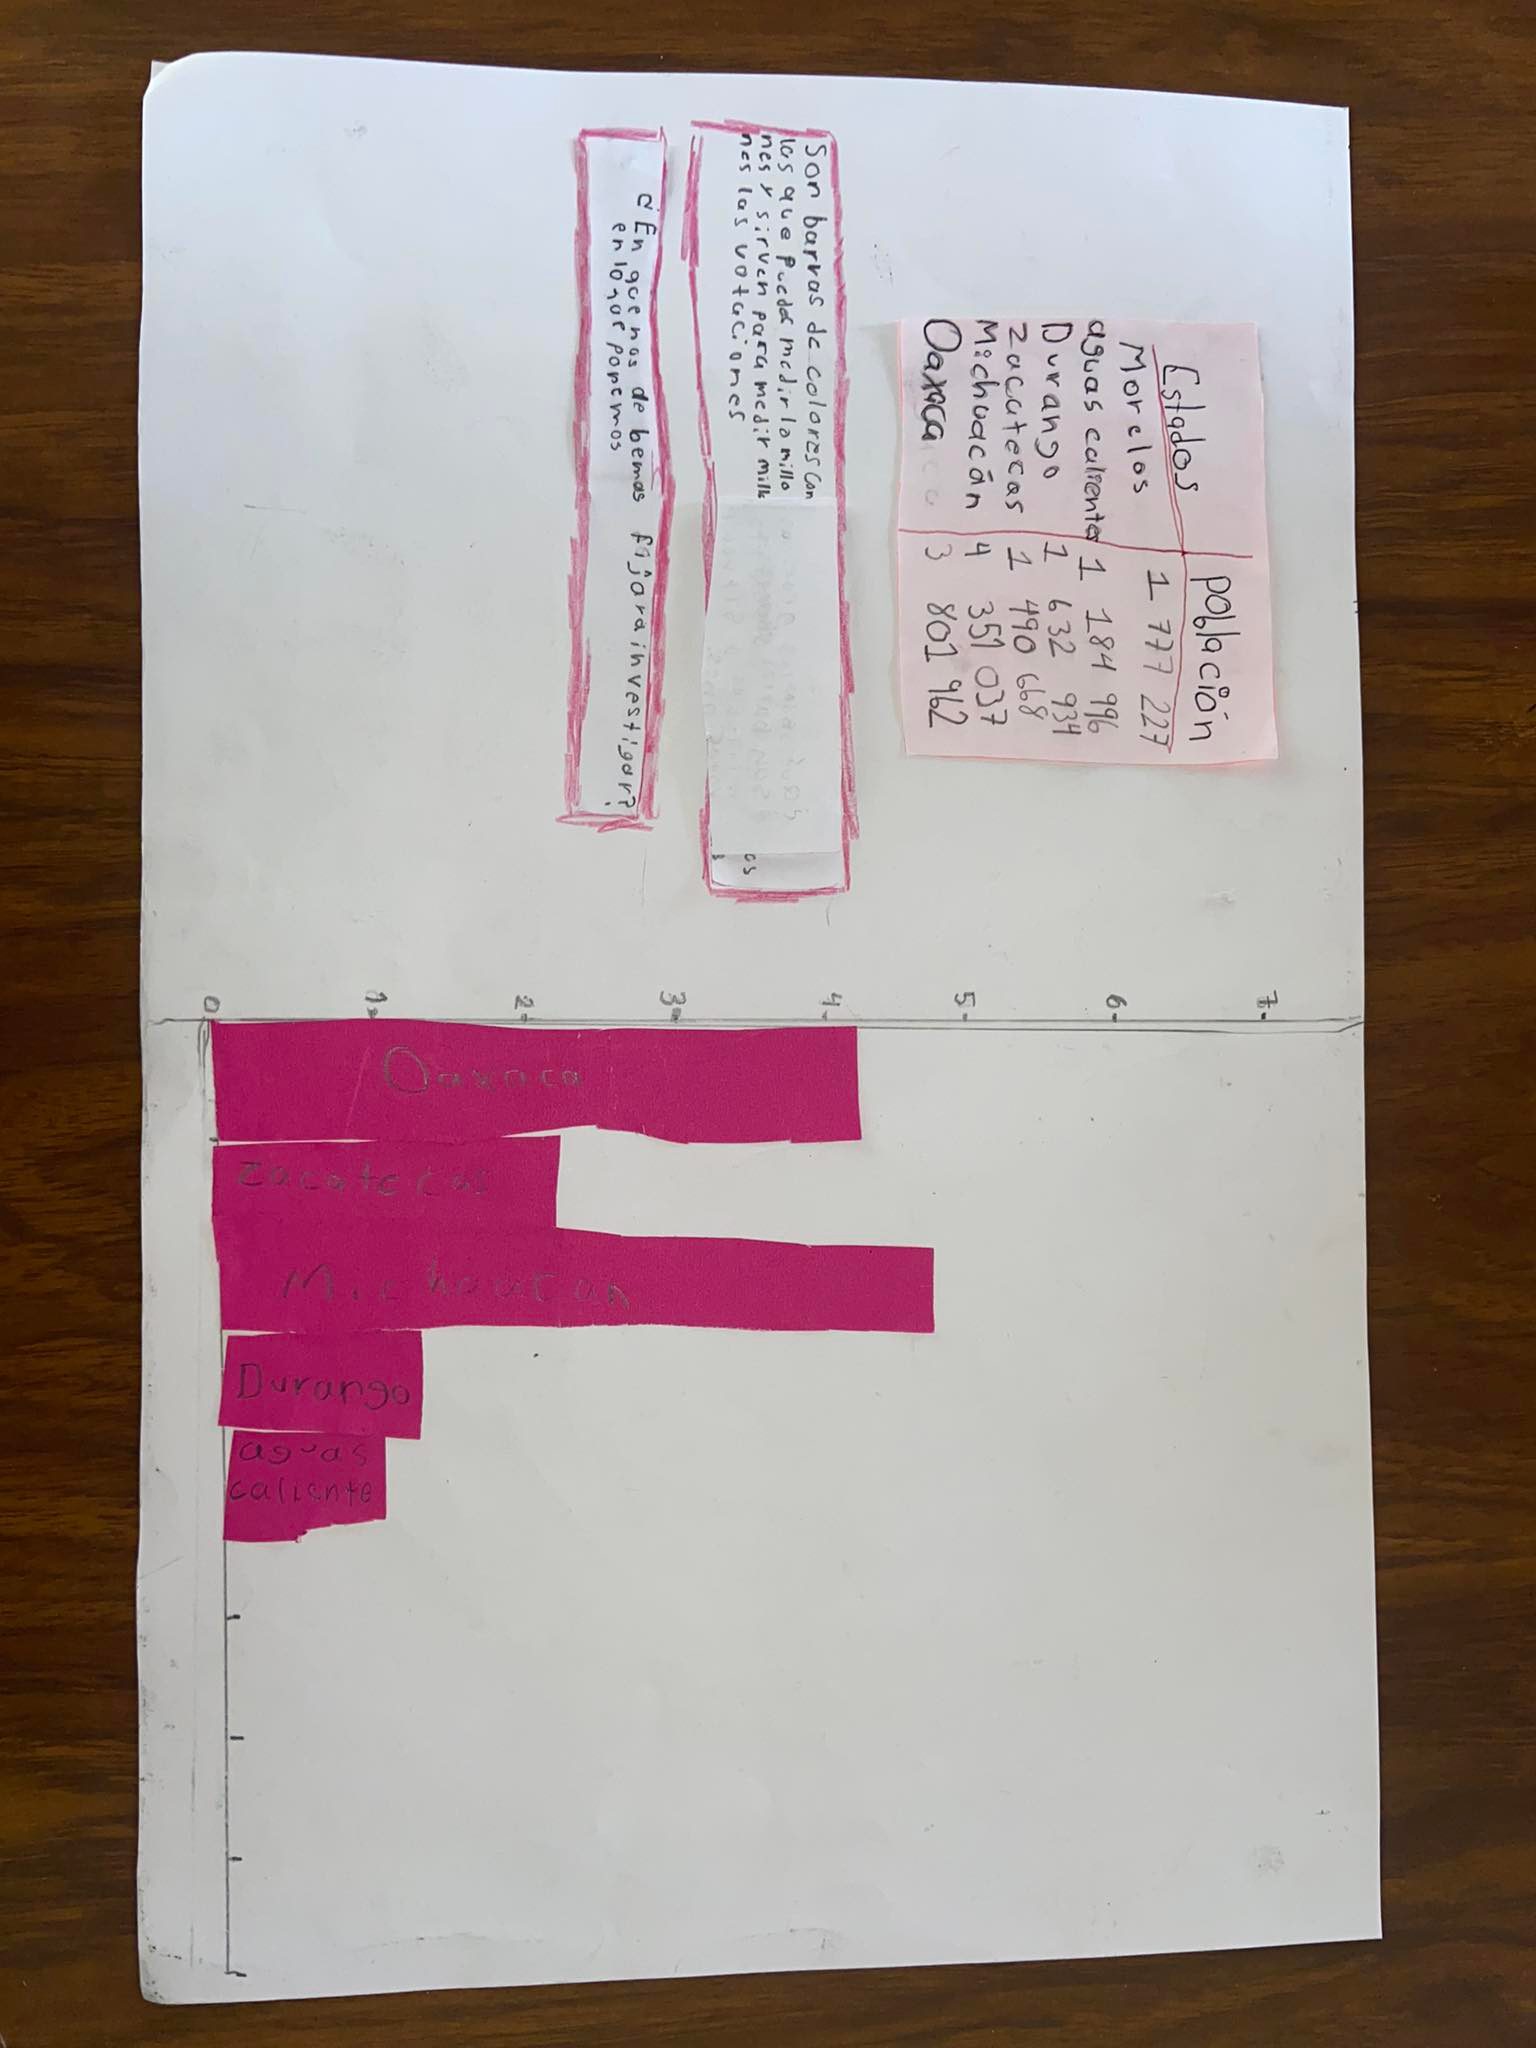 Estados población
Morelos 1 777 227
aguas calientes 1 184 996
Durango 1 632 934
Zacatecas 1 490 668
Michuacán 4 351 037
Oaxaca 3 801 962
Son barras de colores con
las que puedes medir lo millo
nes y sirven para medir millo
nes las votaciones
os
¿En que nos de bemas fijarainvestigar?
en lo que ponemos
7
6
5
4
3
2
1
0
Oaxaca
zacatecas
Michoacan
Durango
aguas
caliente